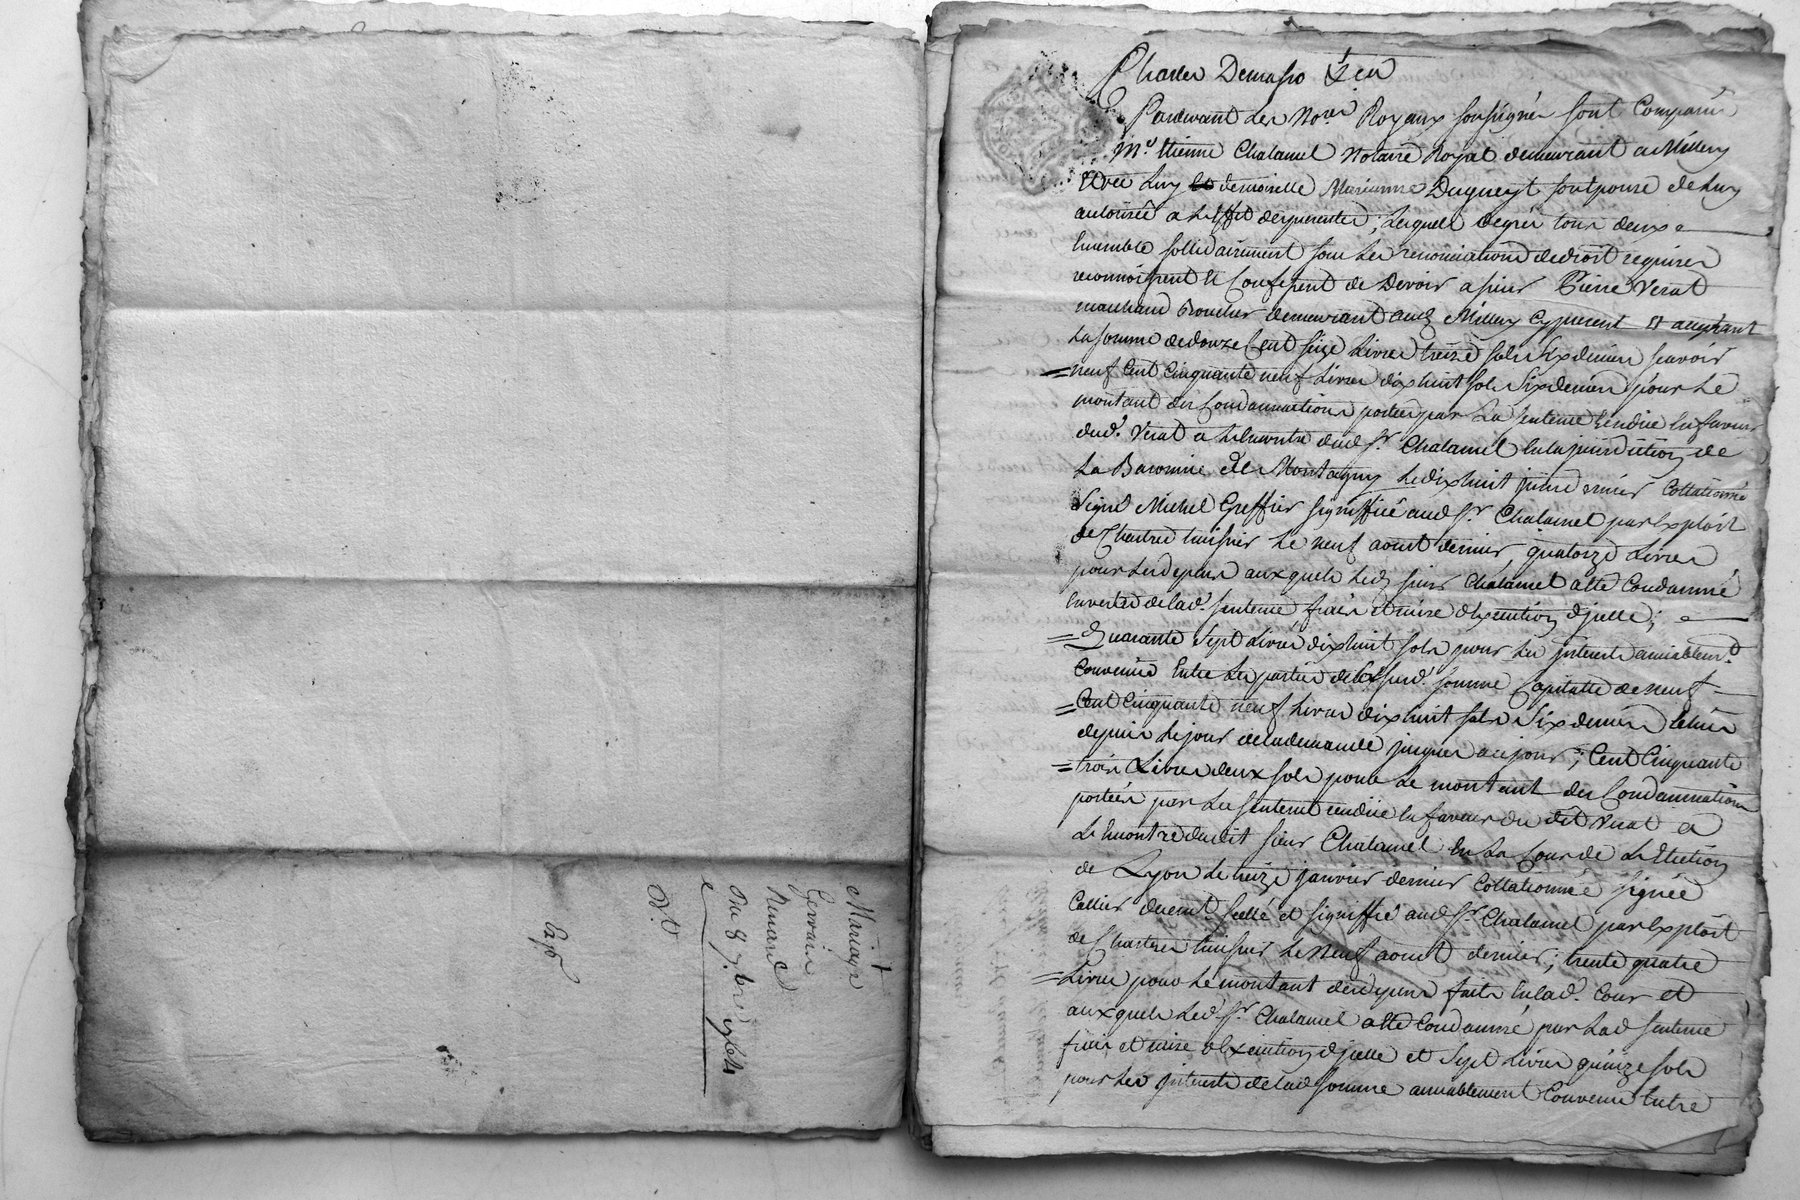 Mariage
Gervais
Du 8 7.bre 1764
Pardevant les No.res Royaux soussignés sont Comparus
M.e Etienne Chalamel Notaire Royal demeurant a Millery
et de luy demoiselle Marianne Dugueyt son epouse de luy
autorisée a l'effet des presentes, lesquels de gré tous deux
Ensemble sollidairement sous les renonciations de droit requises
reconnoissent et Confessent de Devoir a sieur Pierre Verat
marchand Boucher demeurant aud. Millery cy present et acceptant
La somme de douze Cent seize Livres treize sols six deniers sçavoir
neuf Cent Cinquante neuf Livres dix huit sols six deniers pour le
montant des Condamnations portées par La sentence Rendüe en faveur
dud. Verat a l'encontre dud. Sr. Chalamel En la jurisdiction de
La Baronnie de Montagny le dix huit juin dernier Collationné
Signé Michel Greffier signiffiée aud. Sr. Chalamel par Exploit
de Chartre huissier Le neuf aoust dernier, quatorze Livres
pour les depens auxquels led. sieur Chalamel a été Condamné
En vertu de lad. sentence frais et mise d'Execution d'jcelle;
Quarante Sept Livres dix huit sols pour les jnterets amiablem.t
Convenus Entre Les parties de la susd. somme Capitalle de neuf
Cent Cinquante neuf Livres dix huit sols Six deniers
depuis le jour de la demande jusques a ce jour; Cent Cinquante
trois Livres deux sols pour Le montant des Condamnations
portées par les sentence rendüe En faveur du dit Verat a
L'encontre dudit sieur Chalamel En La Cour de L'Election
de Lyon Le janvier dernier Collationnée signée
duement scellé et signiffié aud. Sr. Chalamel par Exploit
de Chartre huissier Le Neuf aoust dernier; trente quatre
Livres pour Le montant des depens faits En lad. Cour et
auxquels led. Sr. Chalamel a été Condamné par Lad. sentence
frais et mise d'Execution d'jcelle et Sept Livres quinze sols
pour les jnterets de lad. somme amiablement Convenus Entre